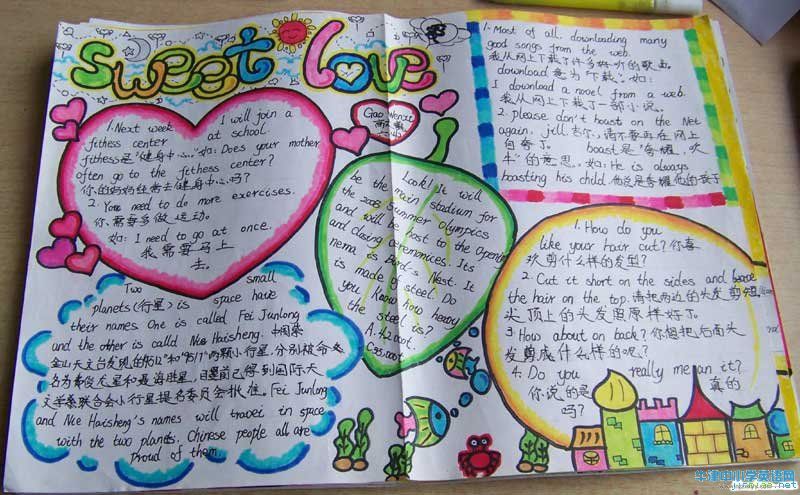 sweet love
1. Next week I will join a
fitness center at school.
fithess是"健身中心。"如: Does your mother
often go to the fithess center?
你的妈妈经常去健身中心吗?
2. You need to do more exercises.
你需要多做运动。
如: I need to go at once.
我需要马上
去。
Gao Wenxi
Two small
planets(行星) is space have
their names. One is called Fei Junlong
and the other is called Nie Haisheng. 中国紫
金山天文台发现的 和 两颗小行星,分别被命
名为费俊龙星和聂海胜星, 已得到国际天
文学家联合会小行星提名委员会批准。Fei Junlong
and Nie Haisheng's names will travel in space
with the two planets. Chinese people all are
proud of them.
Look! It will
be the main stadium for
the 2008 Summer Olympics
and will be host to the Opening
and closing ceremonies. Its
nema is Bird's Nest. It
is made of steel. Do
you know how heavy
the steel is?
A. 42000t.
C. 35000t.
1. Most of all. downloading many
good songs from the web.
我从网上下载了许多好听的歌曲
download 意为"下载"。如:
I download a novel from a web.
我从网上下载了一部小说。
2. please don't boast on the Net
again, jill. 吉尔,请不要再在网上
自夸了。 boast是"夸耀,吹
牛"的意思。如: He is always
boasting his child. 他总是夸耀他的孩子
1. How do you
like your hair cut? 你喜
欢剪什么样的发型?
2. Cut it short on the sides and
the hair on the top. 请把两边的头发剪短
头顶上的头发留原样好了。
3. How about on back? 你想把后面头
发剪成什么样的呢?
4. Do you really mean it?
你说的是 真的
吗?
牛津中小学英语网